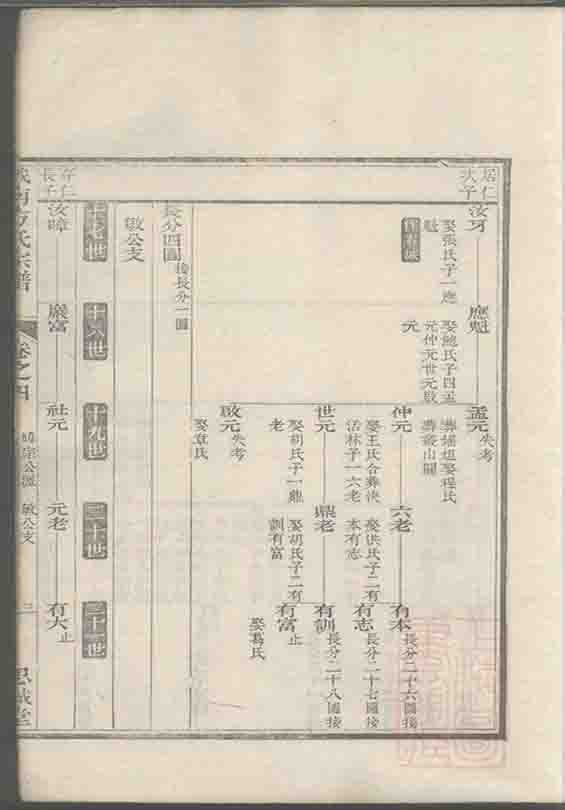 居仁
次子
汝牙
娶張氏子一應
魁
應魁
娶鮑氏子四孟
元仲元世元啟
元
孟元
失考
葬
娶程氏
葬
山
仲元
娶王氏合葬
活林子一六老
六老
娶洪氏子二有
本有志
有本
長分二十六圖接
有志
長分二十七圖接
世元
娶胡氏子一鼎
老
鼎老
娶胡氏子二有
訓有富
有訓
長分二十八圖接
有富
止
娶葛氏
啟元
失考
娶章氏
長分四圖
接長分一圖
敏公支
十七世
十八世
十九世
二十世
二十一世
存仁
長子
汝暐
巖富
社元
元老
有大
止
方氏宗譜
卷之四
宗公派
敏公支
三